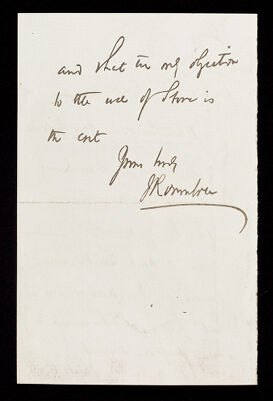 and that the only objection
to the use of Stone is
the cost
Yours truly
J Rowntree